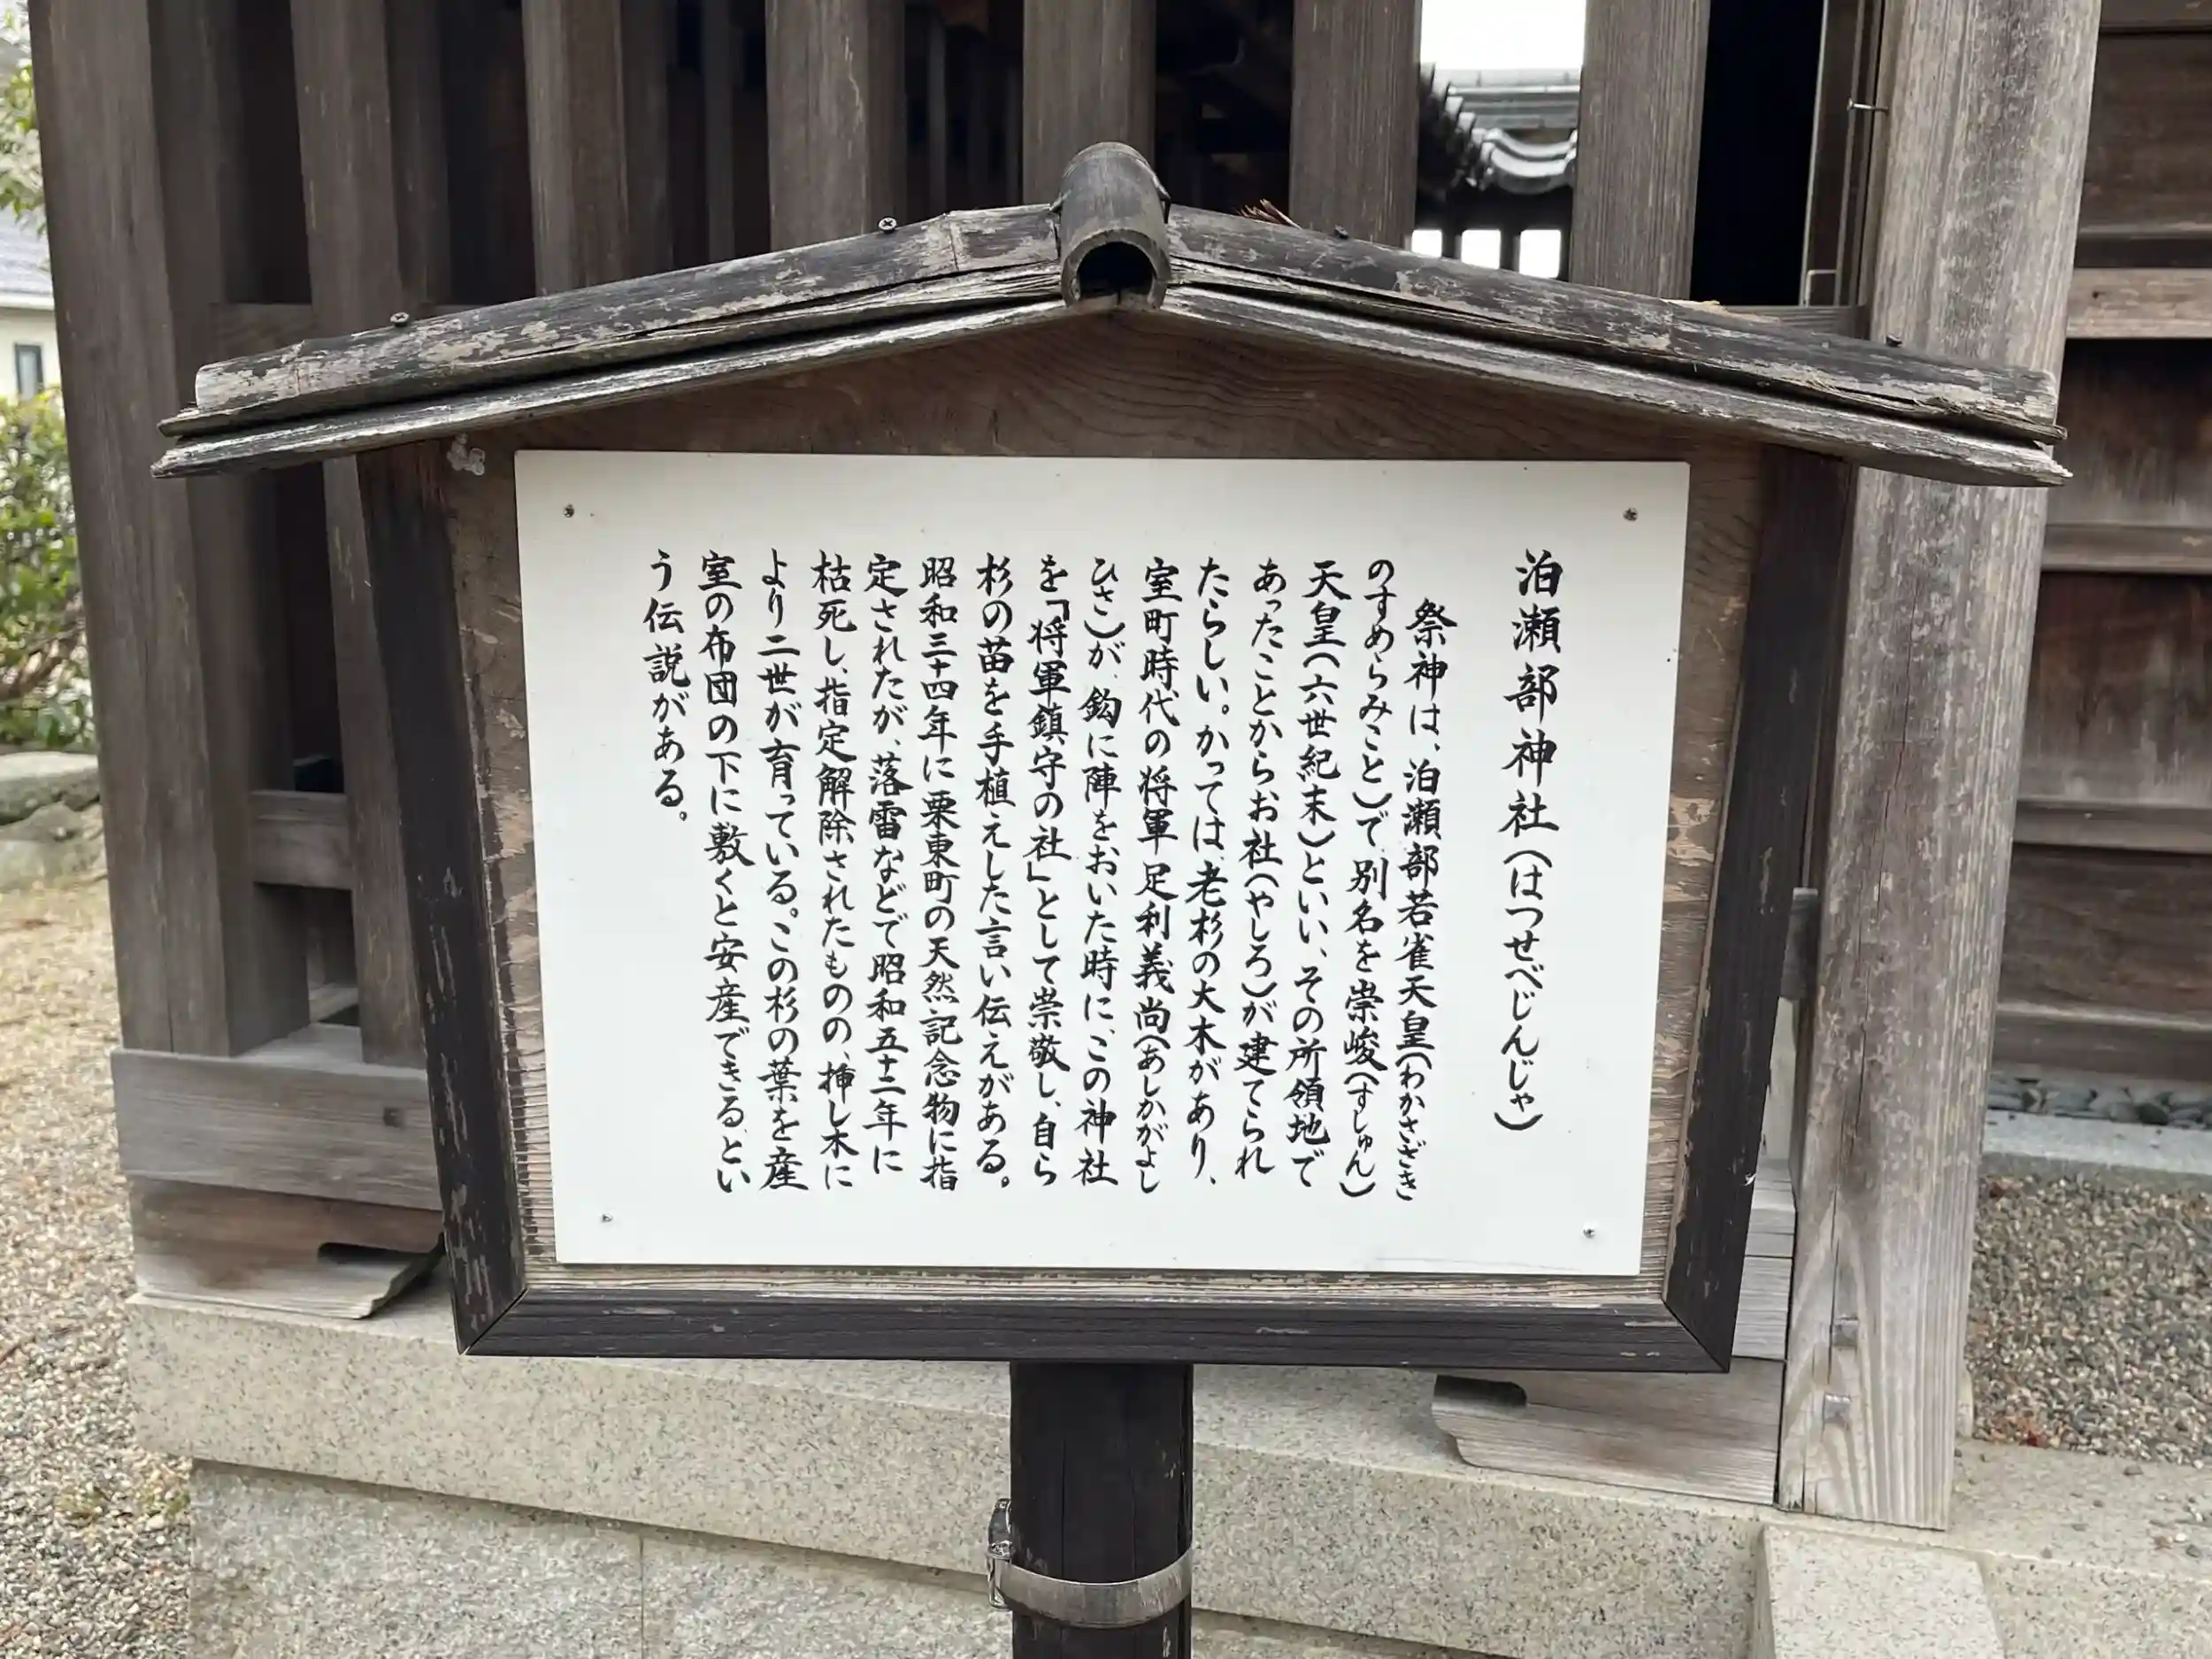 泊瀬部神社(はつせべじんじゃ)
祭神は、泊瀬部若雀天皇(わかさざき
のすめらみこと)で、別名を崇峻(すしゅん)
天皇(六世紀末)といい、その所領地で
あったことからお社(やしろ)が建てられ
たらしい。かっては、老杉の大木があり、
室町時代の将軍足利義尚(あしかがよし
ひさ)が、鈎に陣をおいた時に、この神社
を「将軍鎮守の社」として崇敬し、自ら
杉の苗を手植えした言い伝えがある。
昭和三十四年に栗東町の天然記念物に指
定されたが、落雷などで昭和五十二年に
枯死し、指定解除されたものの、挿し木に
より二世が育っている。この杉の葉を産
室の布団の下に敷くと安産できる、とい
う伝説がある。